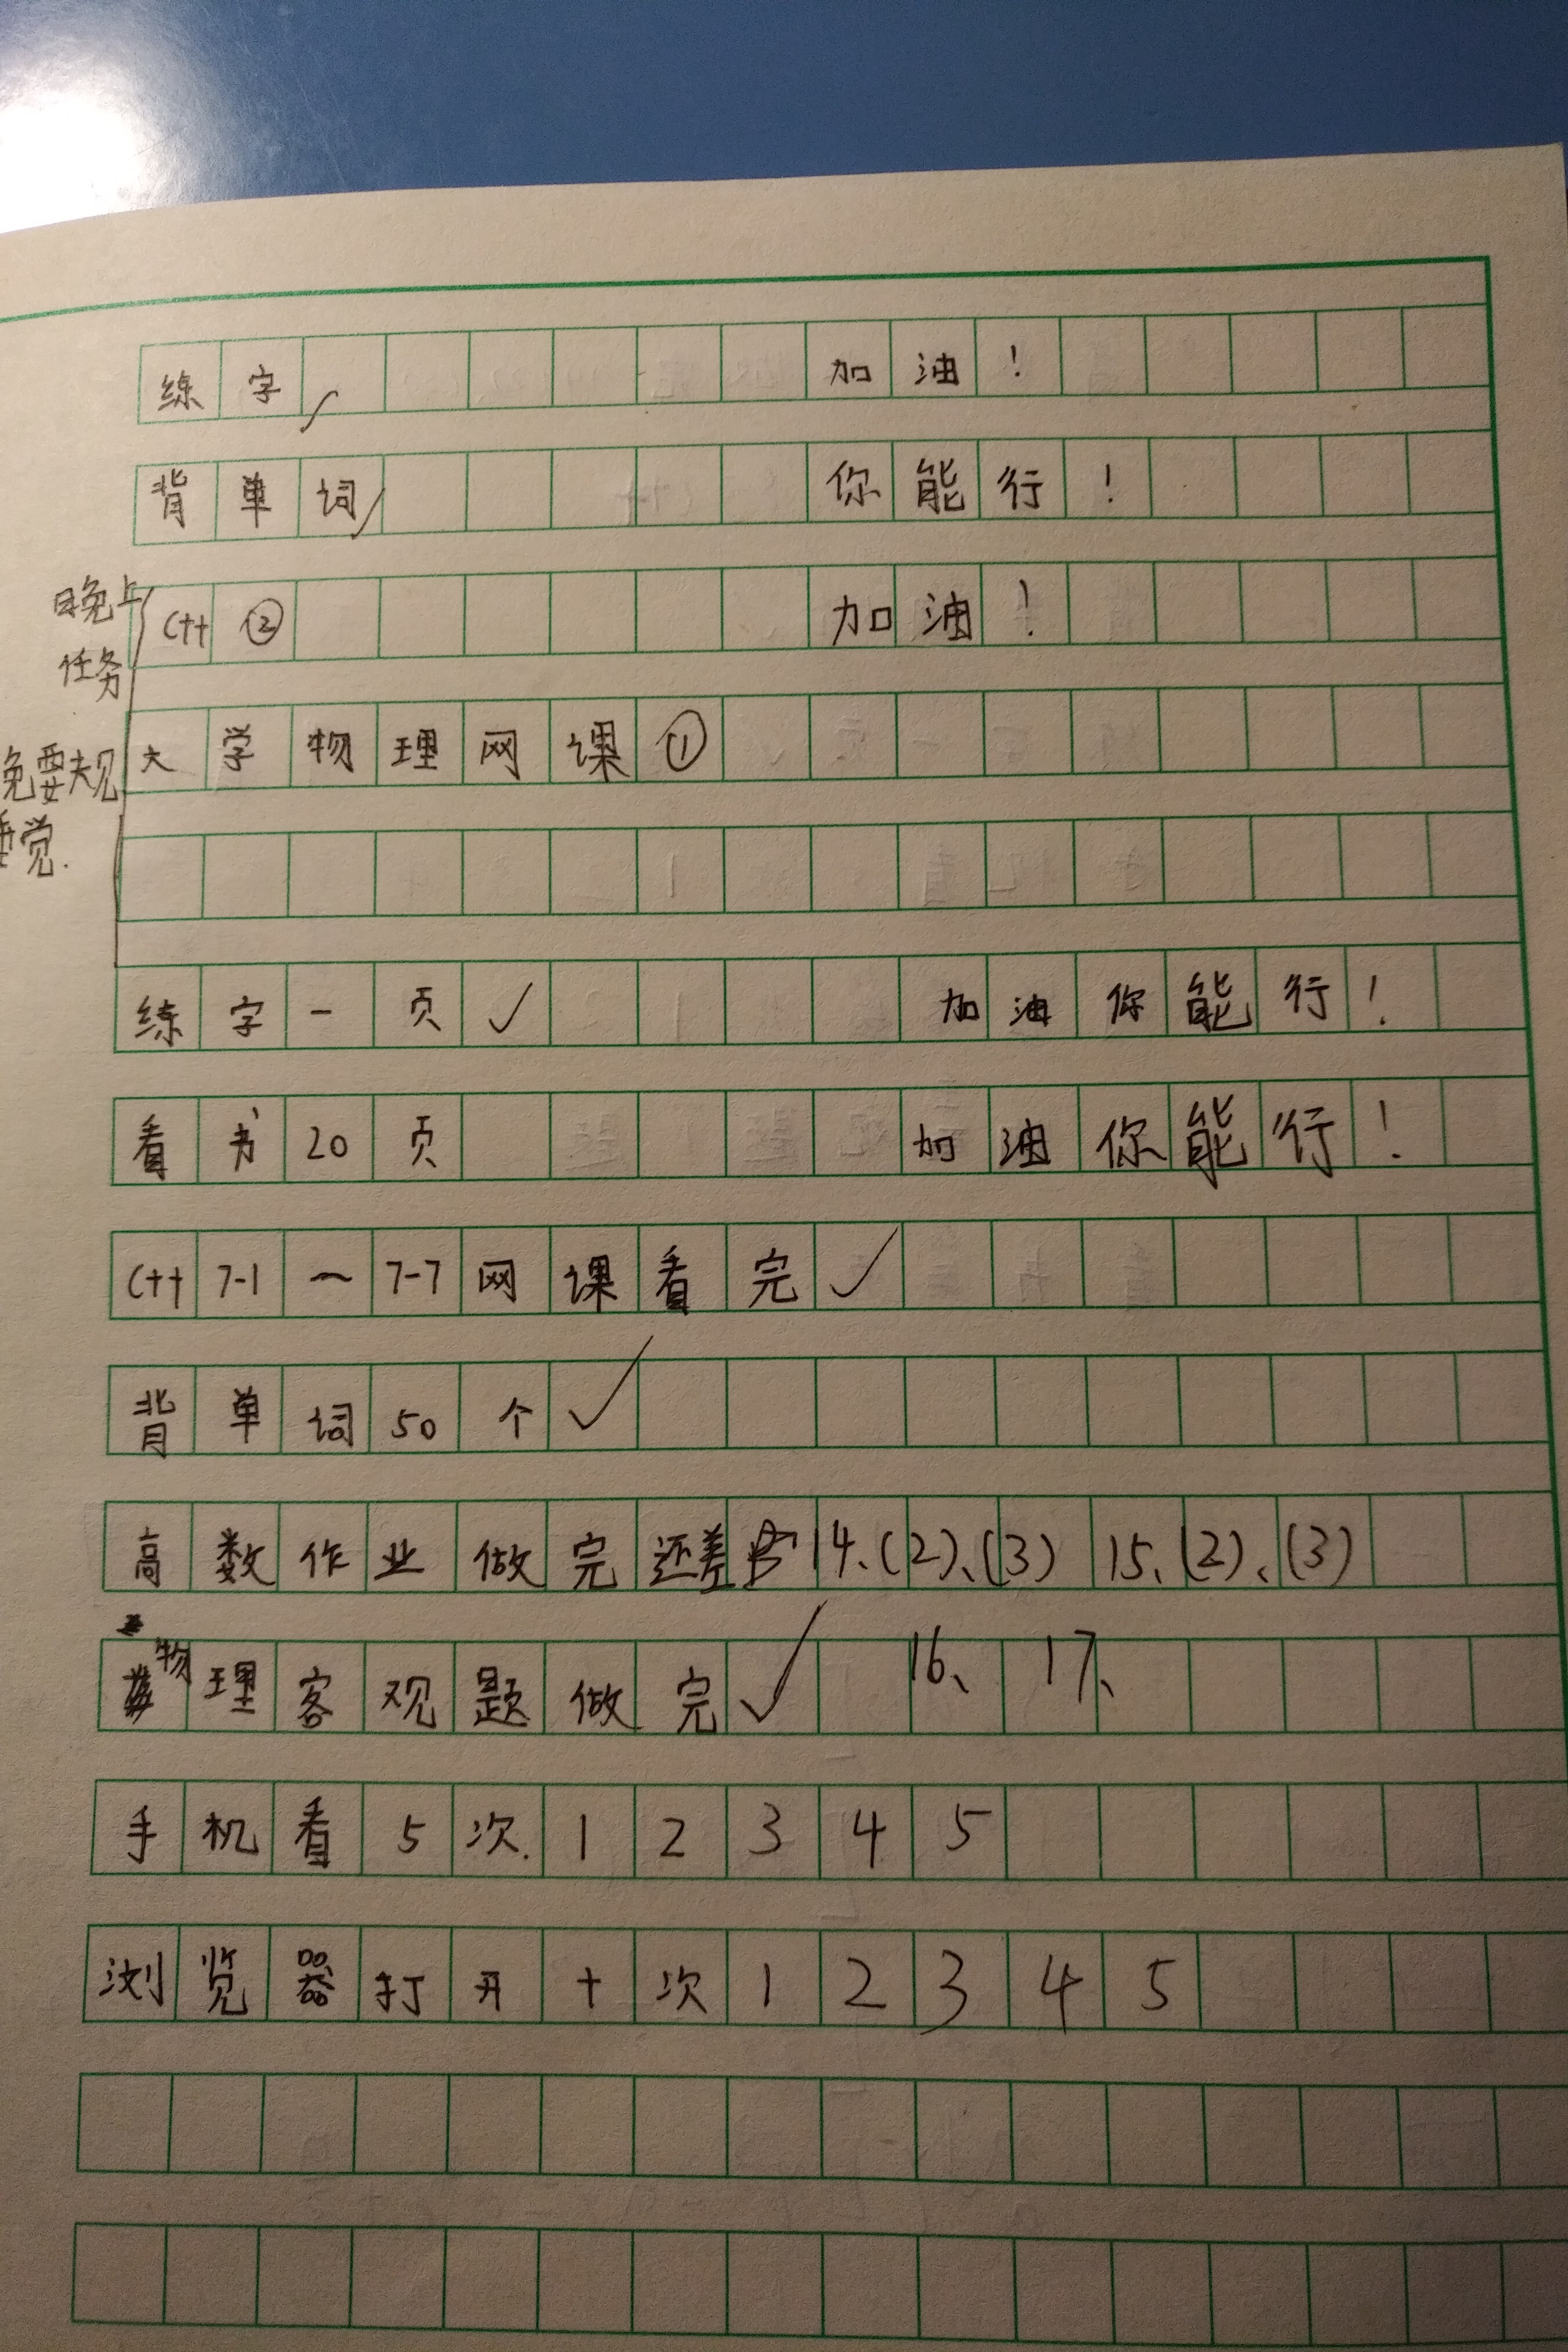 练字✓ 加油!
背单词✓ 你能行!
日晚上
任务
C++ ② 加油!
大学物理网课①
晚要规
睡觉.
练字一页✓ 加油你能行!
看书20页 加油你能行!
C++ 7-1~7-7网课看完✓
背单词50个✓
高数作业做完还差 14、(2)、(3) 15、(2)、(3)
16、17、
物理客观题做完✓
手机看5次. 1 2 3 4 5
浏览器打开十次 1 2 3 4 5